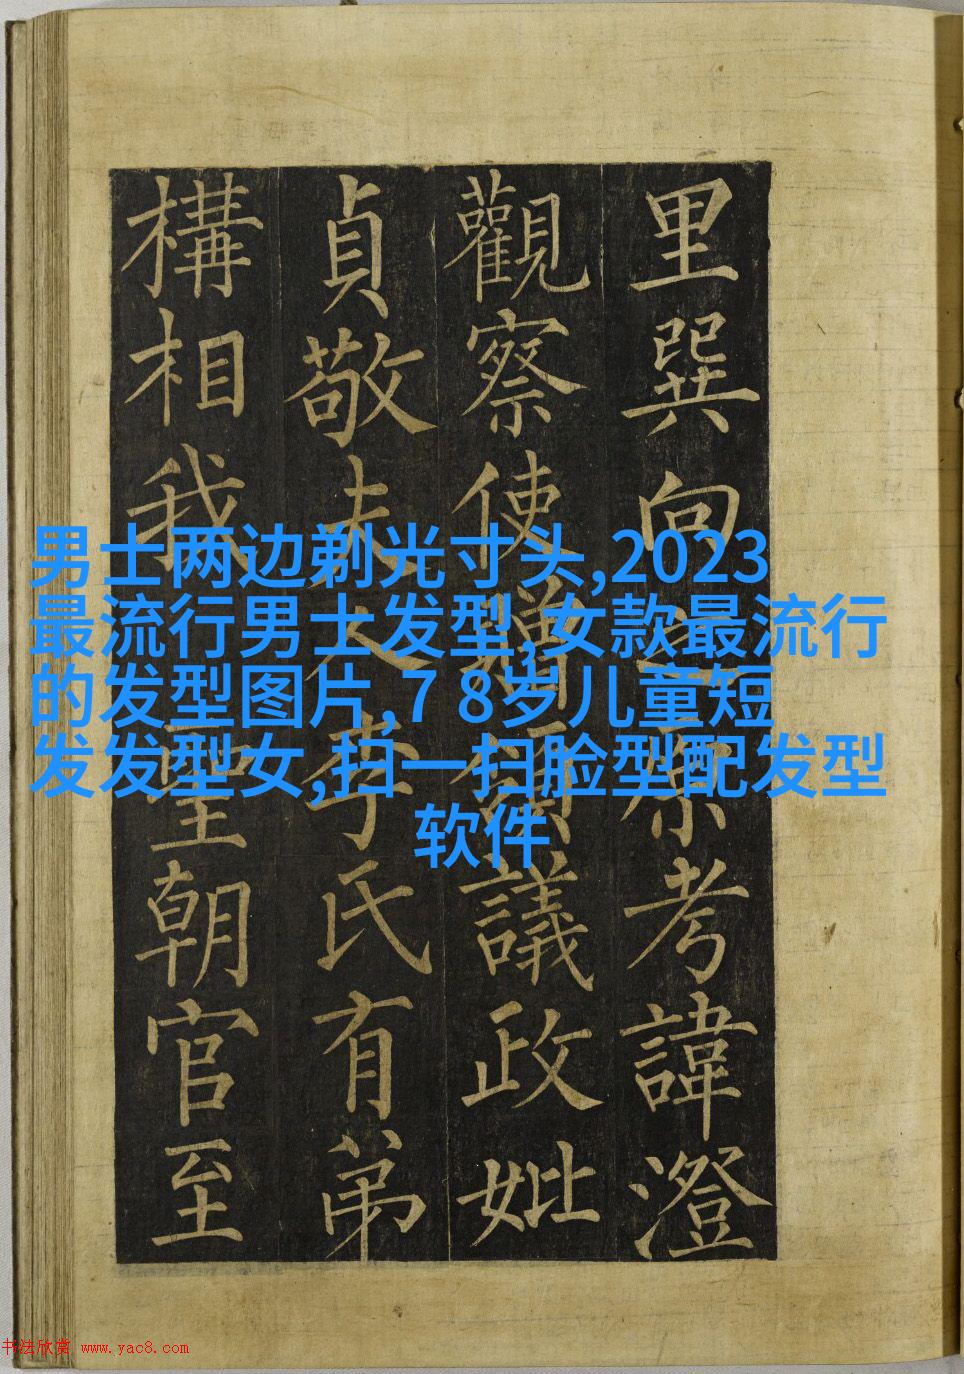 里巽向原考諱澄
觀察使贈領議政妣
貞敬夫人李氏有弟
構相我聖朝官至
男士两边剃光寸头,2023
最流行男士发型,女款最流行
的发型图片,7 8岁儿童短
发发型女,扫一扫脸型配发型
软件
书法欣赏 www.yac8.com